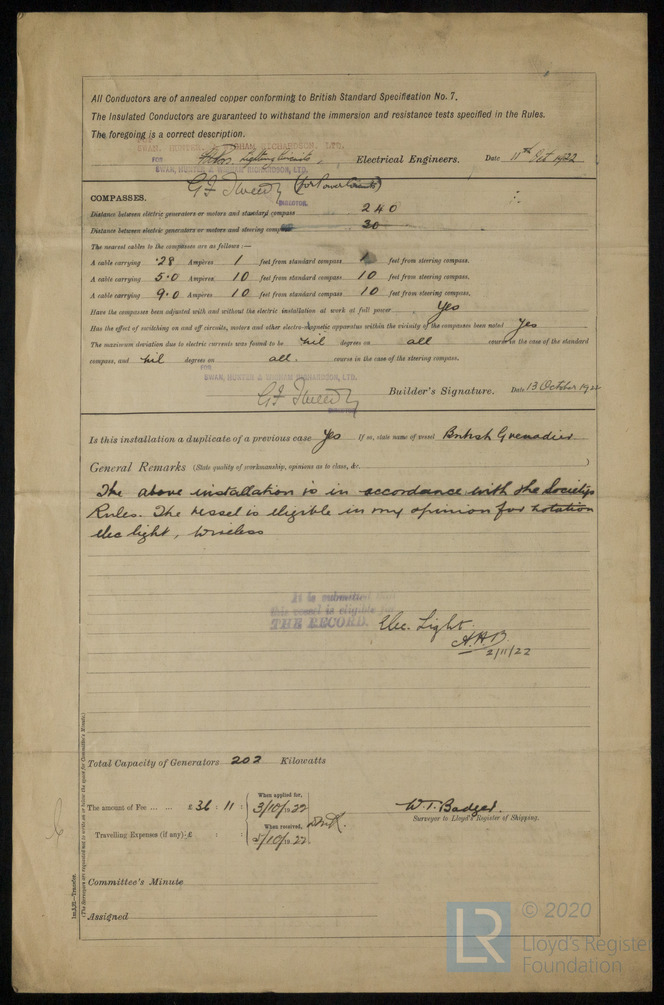 All Conductors are of annealed copper conforming to British Standard Specification No. 7.
The Insulated Conductors are guaranteed to withstand the immersion and resistance tests specified in the Rules.
The foregoing is a correct description.
SWAN, HUNTER, & WIGHAM RICHARDSON, LTD.
FOR Lighting Circuits, Electrical Engineers. Date 11th Oct 1922
SWAN, HUNTER & WIGHAM RICHARDSON, LTD.
G F Tweedy (for Power Circuits)
DIRECTOR.
COMPASSES.
Distance between electric generators or motors and standard compass 240
Distance between electric generators or motors and steering compass 30
The nearest cables to the compasses are as follows :—
A cable carrying .28 Ampères 1 feet from standard compass 1 feet from steering compass.
A cable carrying 5.0 Ampères 10 feet from standard compass 10 feet from steering compass.
A cable carrying 9.0 Ampères 10 feet from standard compass 10 feet from steering compass.
Have the compasses been adjusted with and without the electric installation at work at full power Yes
Has the effect of switching on and off circuits, motors and other electro-magnetic apparatus within the vicinity of the compasses been noted Yes
The maximum deviation due to electric currents was found to be nil degrees on all course in the case of the standard
compass, and nil degrees on all course in the case of the steering compass.
FOR
SWAN, HUNTER & WIGHAM RICHARDSON, LTD.
G F Tweedy Builder's Signature. Date 13 October 1922
DIRECTOR
Is this installation a duplicate of a previous case Yes If so, state name of vessel British Grenadier
General Remarks (State quality of workmanship, opinions as to class, &c.)
The above installation is in accordance with the Society's
Rules. The vessel is eligible in my opinion for notation
elec light, Wireless
It is submitted that
this vessel is eligible for
THE RECORD. Elec. Light.
A.A.B.
2/11/22
Total Capacity of Generators 202 Kilowatts
The amount of Fee ... ... £ 36 : 11 :
When applied for,
3/10/1922
Travelling Expenses (if any) £ : :
When received,
5/10/1922
W. T. Badger.
Surveyor to Lloyd's Register of Shipping.
Committee's Minute
Assigned
1m,3,21—Transfer.
(The Surveyors are requested not to write on or below the space for Committee's Minute.)
LR
© 2020
Lloyd's Register
Foundation